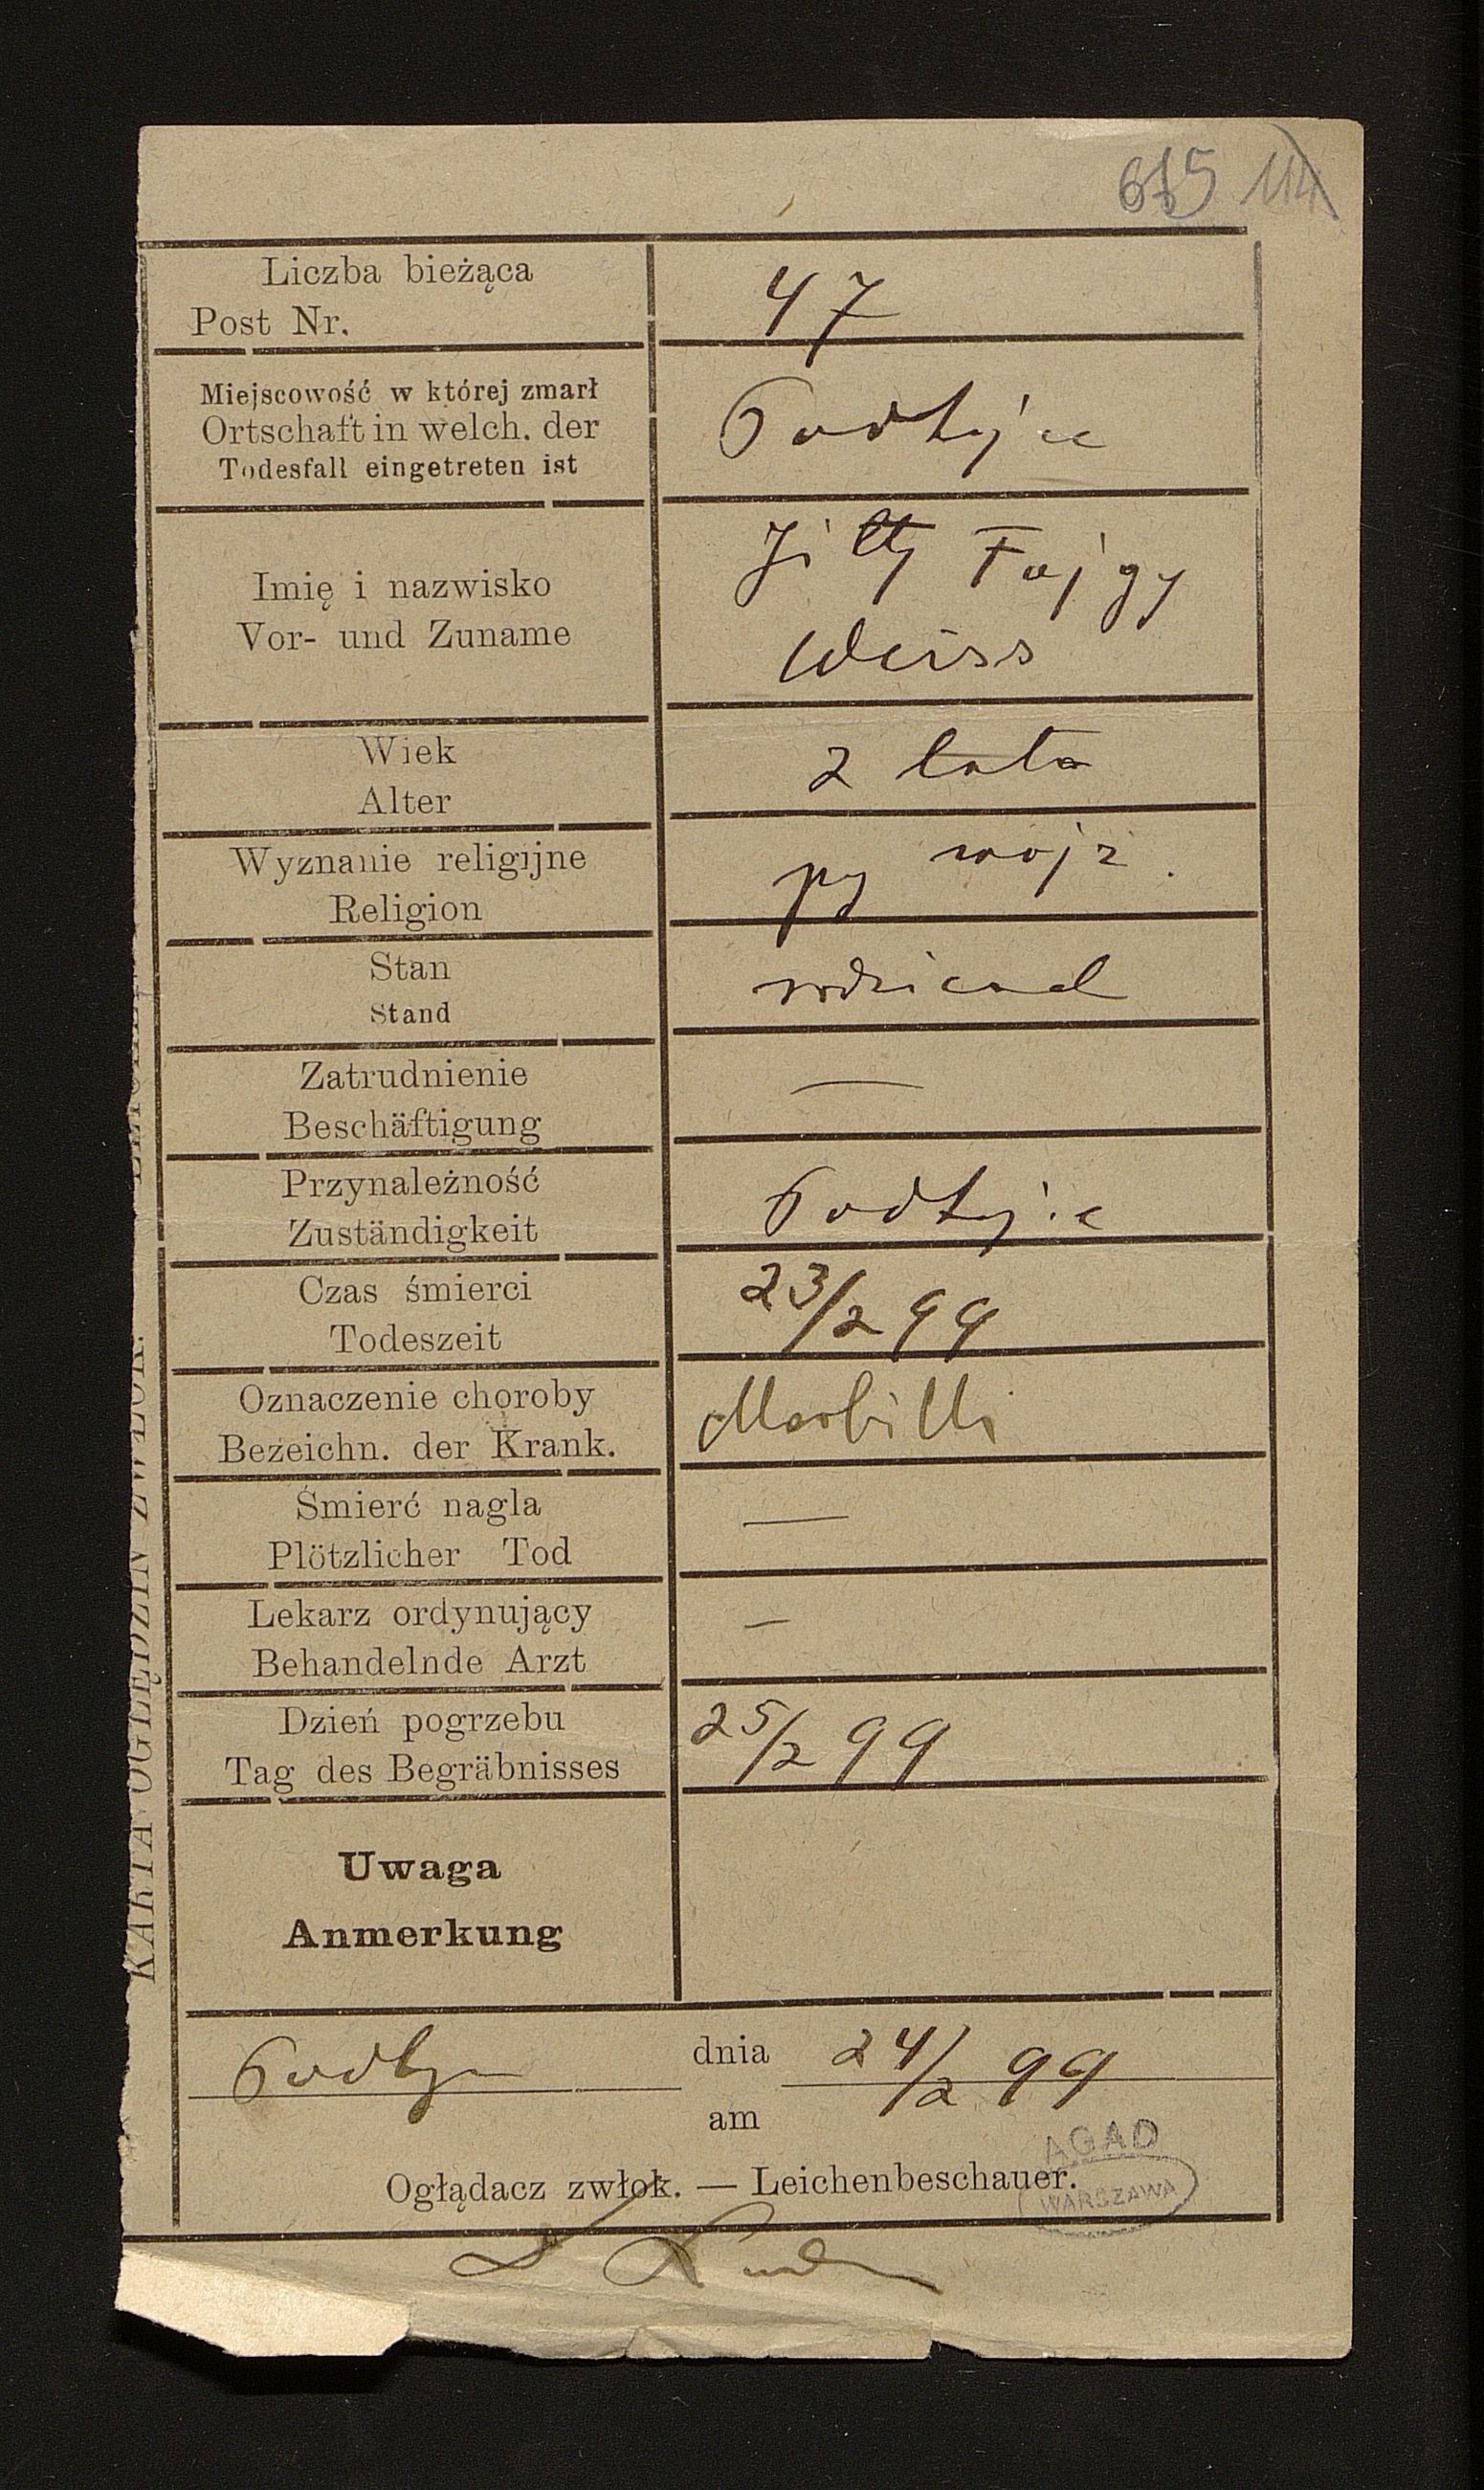 615 114
Liczba bieżąca
Post Nr.
47
Miejscowość w której zmarł
Ortschaft in welch. der
Todesfall eingetreten ist
Imię i nazwisko
Vor- und Zuname
Fajgy
Weiss
Wiek
Alter
2 lata
Wyznanie religijne
Religion
mojż.
Stan
Stand
Zatrudnienie
Beschäftigung
—
Przynależność
Zuständigkeit
Czas śmierci
Todeszeit
23/2 99
Oznaczenie choroby
Bezeichn. der Krank.
Morbilli
Śmierć nagla
Plötzlicher Tod
—
Lekarz ordynujący
Behandelnde Arzt
—
Dzień pogrzebu
Tag des Begräbnisses
25/2 99
Uwaga
Anmerkung
dnia 24/2 99
am
Oglądacz zwłok. — Leichenbeschauer.
AGAD
WARSZAWA
KARTA OGLĘDZIN ZWŁOK.